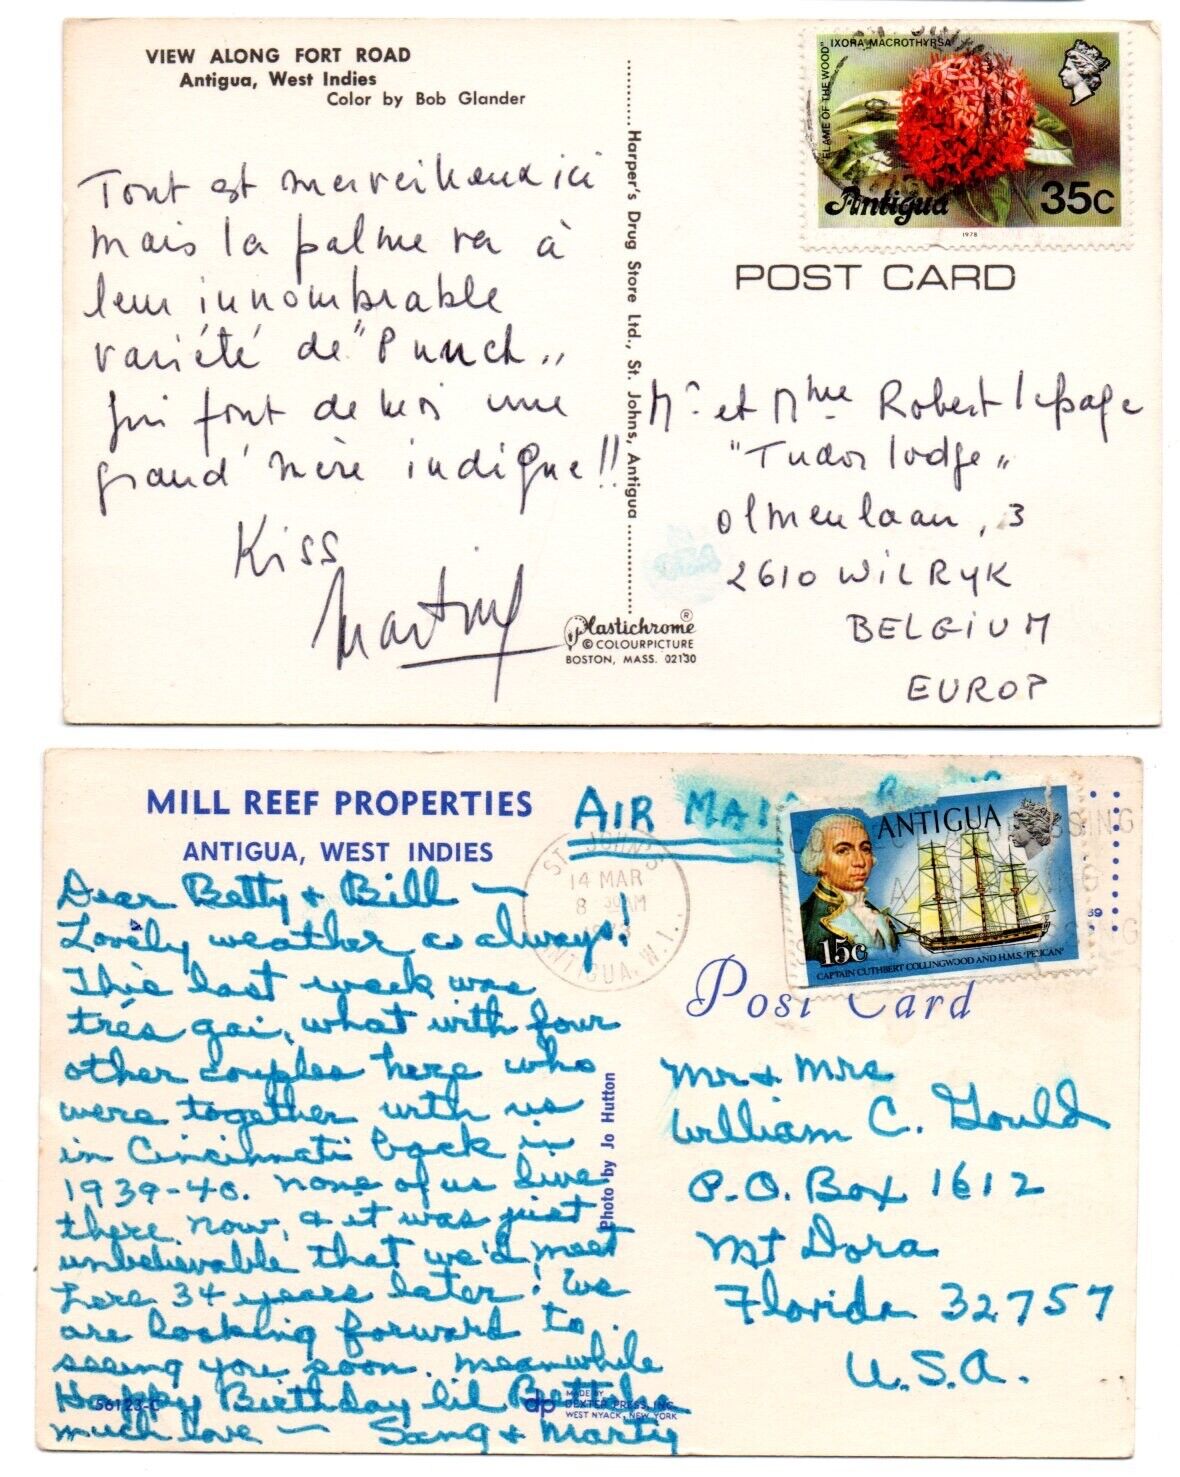 VIEW ALONG FORT ROAD
Antigua, West Indies
Color by Bob Glander
Tout est merveilleux ici
mais la palme va à
leur innombrable
variété de "Punch"
qui font de moi une
grand'mère indigne!!
Kiss
Martine
Harper's Drug Store Ltd., St. Johns, Antigua
Plastichrome ®
© COLOURPICTURE
BOSTON, MASS. 02130
"FLAME OF THE WOOD" IXORA MACROTHYRSA
Antigua 35c
1978
POST CARD
Mr et Mme Robert lepage
"Tudor lodge"
olmenlaan, 3
2610 WILRYK
BELGIUM
EUROP
MILL REEF PROPERTIES
ANTIGUA, WEST INDIES
AIR MAIL
Dear Betty & Bill —
Lovely weather as always!
This last week was
trés gai, what with four
other couples here who
were together with us
in Cincinnati back in
1939-40. None of us live
there now, & it was just
unbelievable that we'd meet
here 34 years later! We
are looking forward to
seeing you soon. Meanwhile
Happy Birthday lil
much love — Sang & Marty
56123-C
Photo by Jo Hutton
dp MADE BY
DEXTER PRESS, INC.
WEST NYACK, NEW YORK
ST. JOHN'S
14 MAR
8 30 AM
ANTIGUA, W.I.
ANTIGUA
15c
CAPTAIN CUTHBERT COLLINGWOOD AND H.M.S. 'PELICAN'
39
Post Card
Mr & Mrs
William C. Gould
P.O. Box 1612
Mt Dora
Florida 32757
U.S.A.